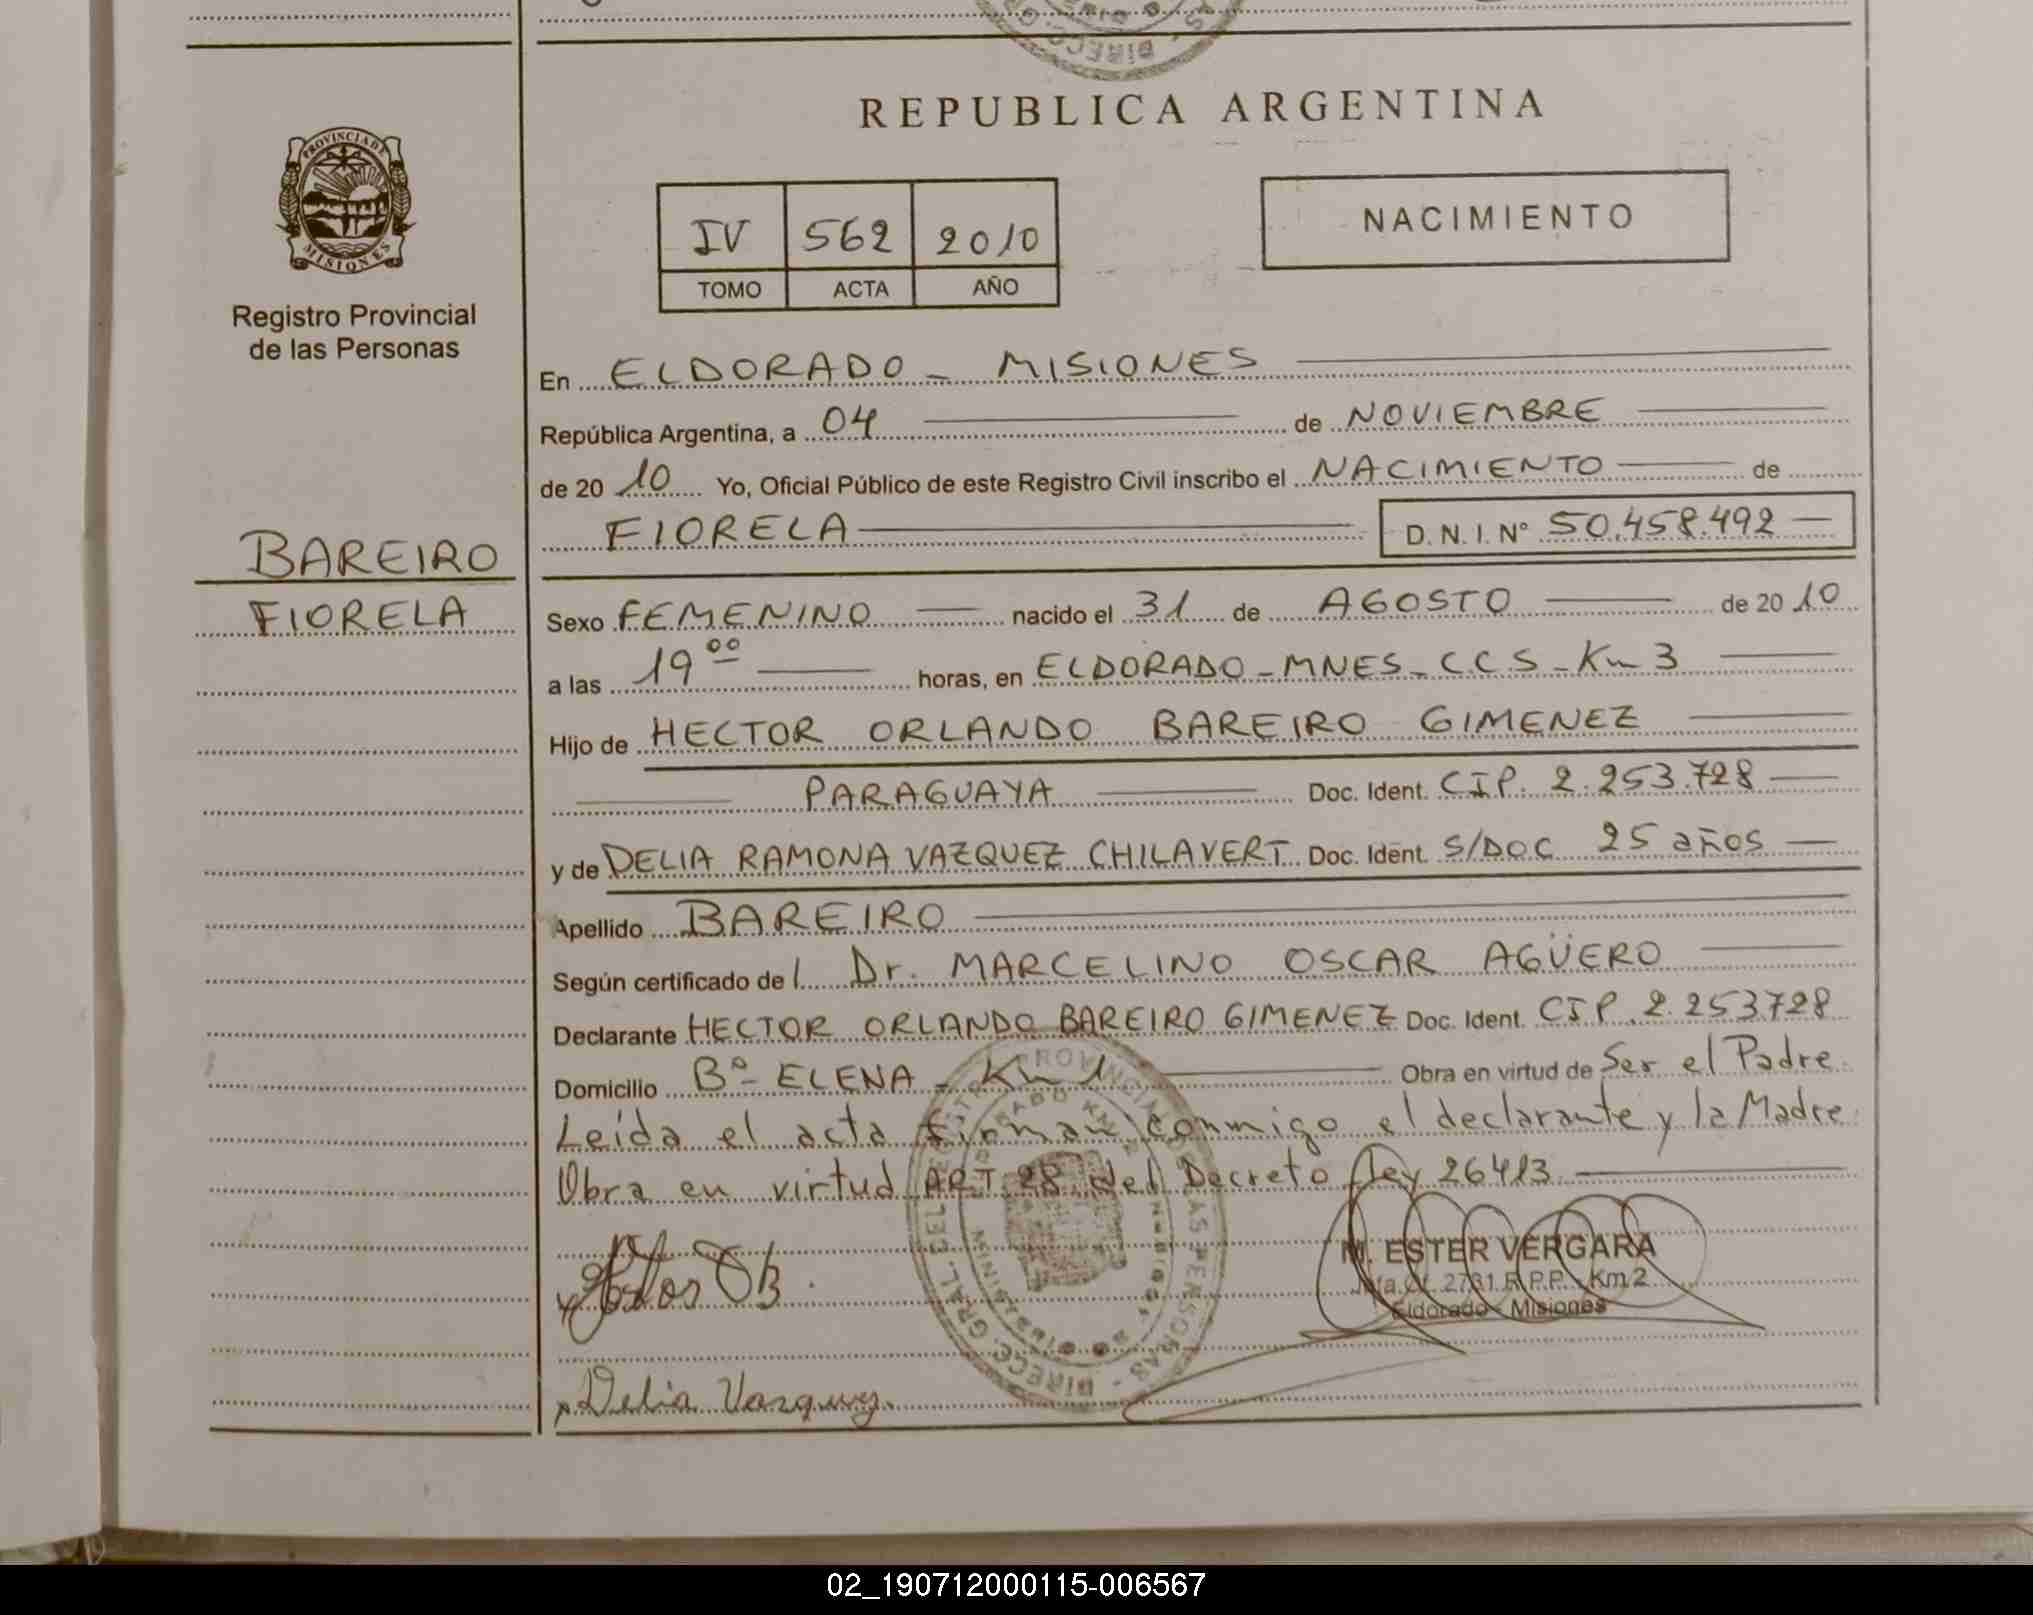 REPUBLICA ARGENTINA
PROVINCIA DE
MISIONES
Registro Provincial
de las Personas
IV 562 2010
TOMO ACTA AÑO
NACIMIENTO
En ELDORADO - MISIONES
República Argentina, a 04 de NOVIEMBRE
de 20 10 Yo, Oficial Público de este Registro Civil inscribo el NACIMIENTO de
FIORELA D. N. I. Nº 50.458.492
BAREIRO
FIORELA
Sexo FEMENINO nacido el 31 de AGOSTO de 20 10
a las 19 00 horas, en ELDORADO - MNES - C.C.S - Km 3
Hijo de HECTOR ORLANDO BAREIRO GIMENEZ
PARAGUAYA Doc. Ident. CIP. 2.253.728
y de DELIA RAMONA VAZQUEZ CHILAVERT Doc. Ident. S/DOC 25 años
Apellido BAREIRO
Según certificado de l Dr. MARCELINO OSCAR AGÜERO
Declarante HECTOR ORLANDO BAREIRO GIMENEZ Doc. Ident. CIP. 2.253728
Domicilio Bº - ELENA - Km 1 Obra en virtud de Ser el Padre
Leída el acta firman conmigo el declarante y la Madre
Obra en virtud ART 28 del Decreto Ley 26413
M. ESTER VERGARA
2731 R.P.P. - Km 2
Eldorado - Misiones
Delia Vazquez
02_190712000115-006567